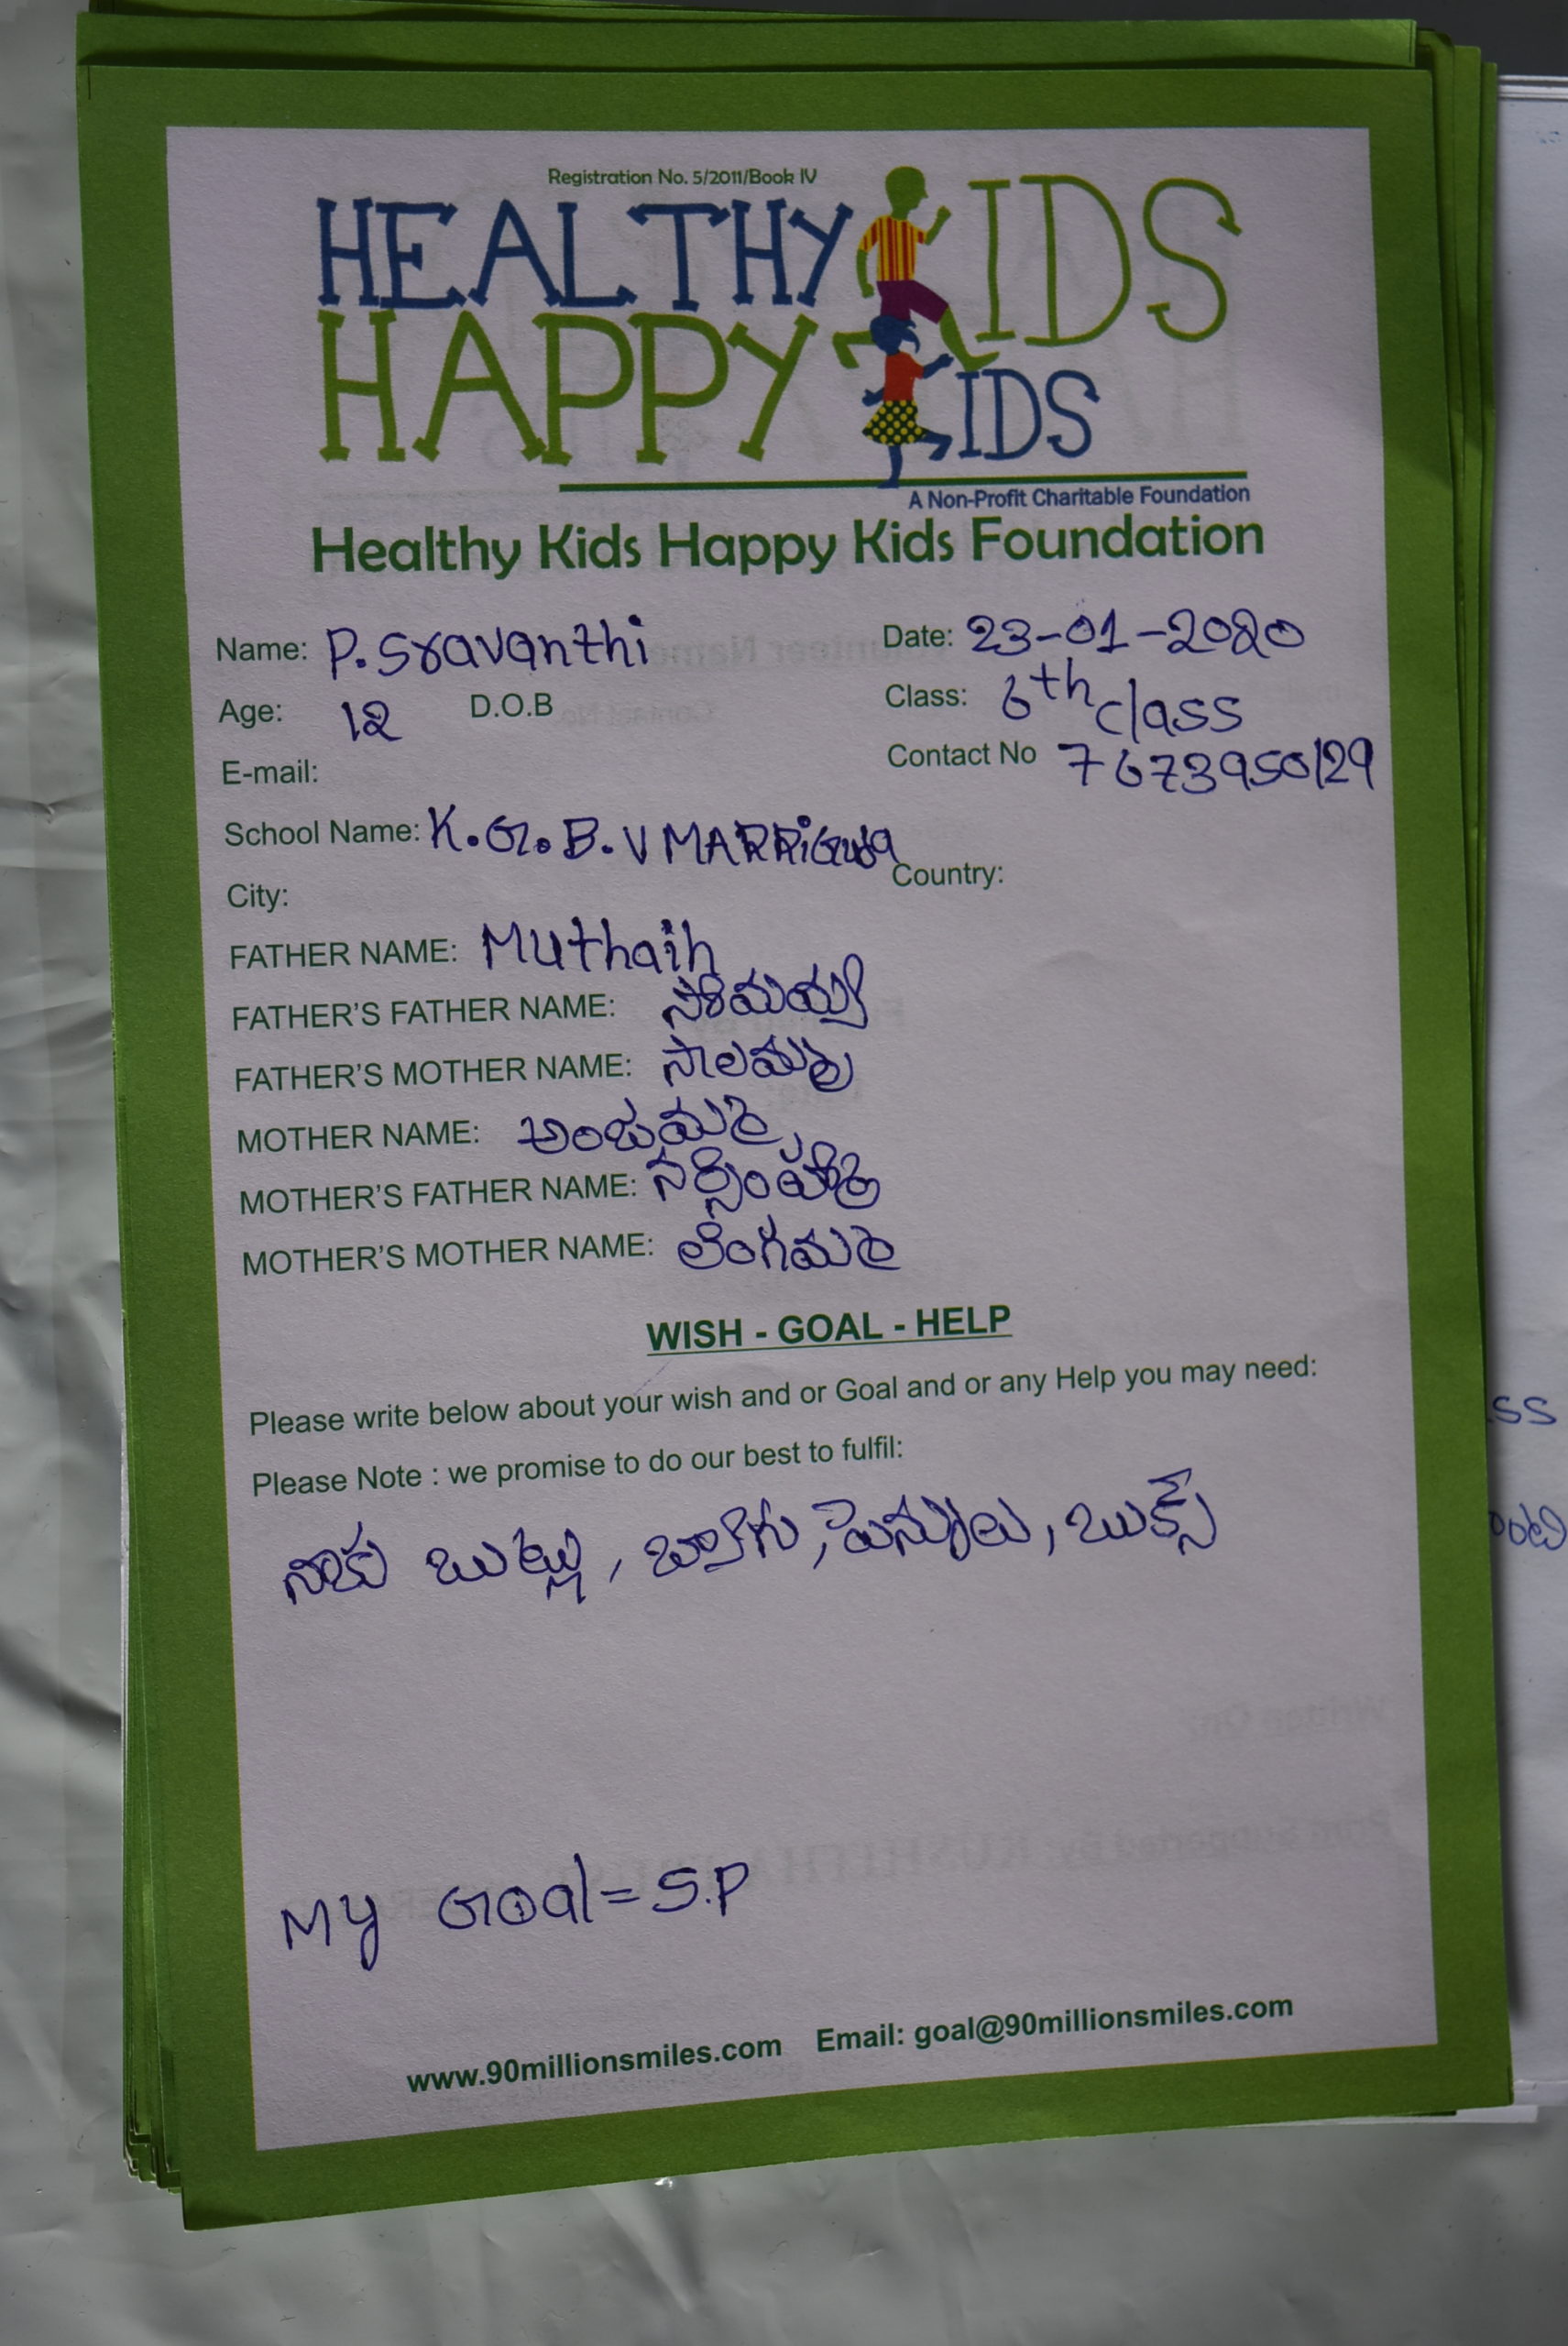 Registration No. 5/2011/Book IV
HEALTHY KIDS
HAPPY KIDS
A Non-Profit Charitable Foundation
Healthy Kids Happy Kids Foundation
Name: P. Sravanthi Date: 23-01-2020
Age: 12 D.O.B Class: 6th class
E-mail: Contact No 7673950129
School Name: K.G.B.V MARRiGuda
City: Country:
FATHER NAME: Muthaih
FATHER'S FATHER NAME: సోమయ్య
FATHER'S MOTHER NAME: సాలమ్మ
MOTHER NAME: అంజమ్మ
MOTHER'S FATHER NAME:
MOTHER'S MOTHER NAME: లింగమ్మ
WISH - GOAL - HELP
Please write below about your wish and or Goal and or any Help you may need:
Please Note : we promise to do our best to fulfil:
నాకు బుట్లు, బ్యాగు, పెన్నులు, బుక్స్
My Goal = S.P
www.90millionsmiles.com Email: goal@90millionsmiles.com